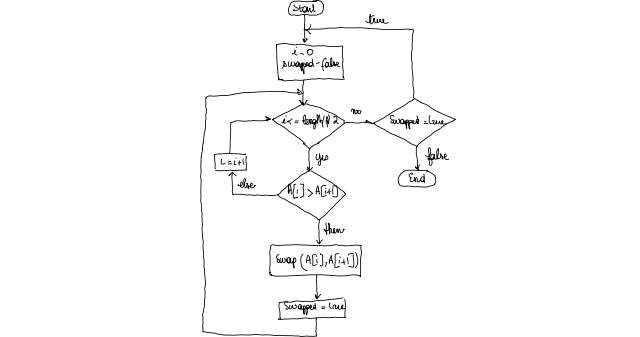 Start
true
i=0
swapped=false
i<=length(A)-2
no
Swapped=true
yes
false
End
i=i+1
else
A[i]>A[i+1]
then
Swap(A[i],A[i+1])
Swapped=true